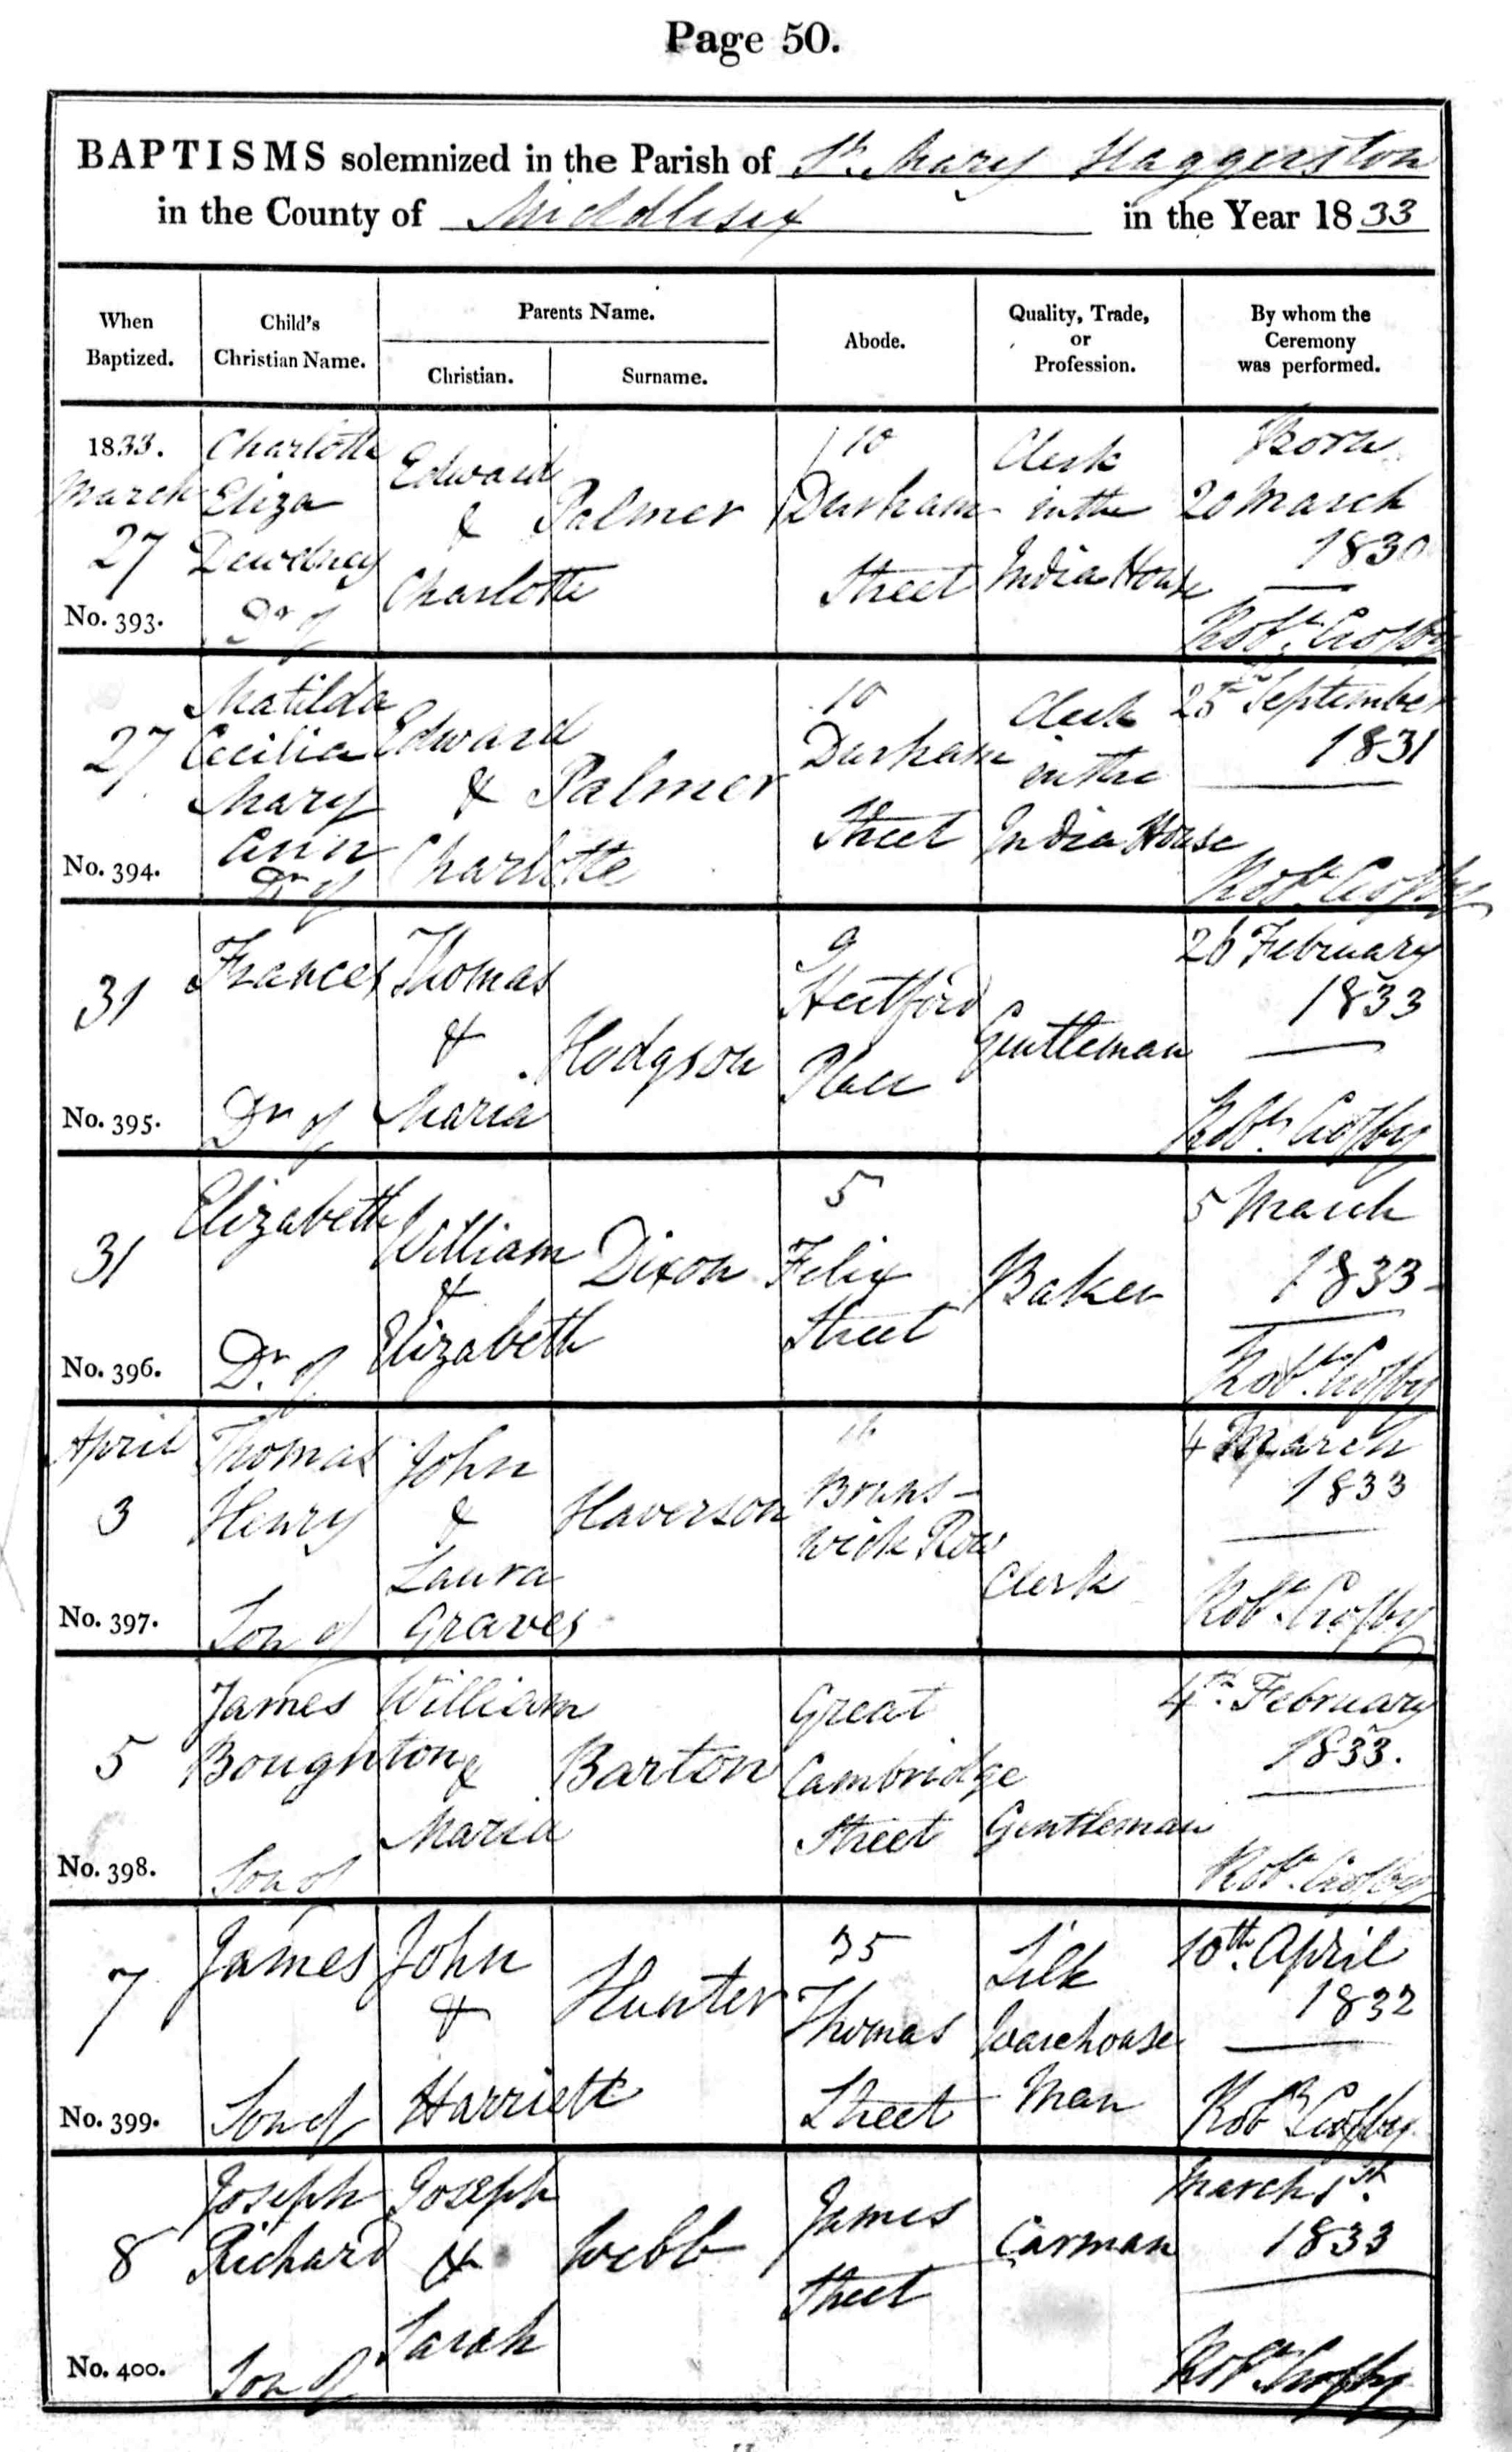 Page 50.
BAPTISMS solemnized in the Parish of St. Mary Haggerston
in the County of Middlesex in the Year 1833
When Baptized.
Child's Christian Name.
Parents Name.
Christian.
Surname.
Abode.
Quality, Trade, or Profession.
By whom the Ceremony was performed.
1833.
March
27
No. 393.
Charlotte
Eliza
Dewdney
Dr of
Edward
&
Charlotte
Palmer
10
Durham
Street
Clerk
in the
India House
Born
20 March
1830
Robt. Crosby
27
No. 394.
Matilda
Cecilia
Mary
Ann
Dr of
Edward
&
Charlotte
Palmer
10
Durham
Street
Clerk
in the
India House
25th September
1831
Robt Crosby
31
No. 395.
Frances
Dr of
Thomas
&
Maria
Hodgson
9
Hertford
Place
Gentleman
26 February
1833
Robt. Crosby
31
No. 396.
Elizabeth
Dr. of
William
&
Elizabeth
Dixon
5
Felix
Street
Baker
5 March
1833
Robt. Crosby
April
3
No. 397.
Thomas
Henry
Son of
John
&
Laura
Graves
Haverson
16
Bruns-
wick Row
Clerk
4 March
1833
Robt. Crosby
5
No. 398.
James
Boughton
Son of
William
&
Maria
Barton
Great
Cambridge
Street
Gentleman
4th February
1833.
Robt. Crosby
7
No. 399.
James
Son of
John
&
Harriett
Hunter
35
Thomas
Street
Silk
Warehouse
Man
10th. April
1832
Robt Crosby
8
No. 400.
Joseph
Richard
Son of
Joseph
&
Sarah
Webb
James
Street
Carman
March 1st.
1833
Robt Crosby